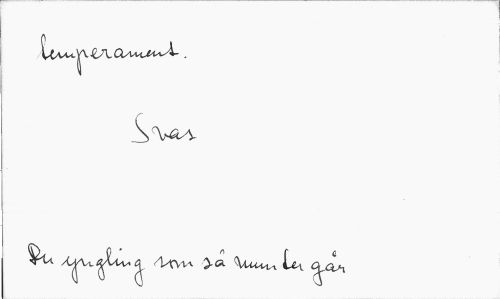 temperament.
Svas
Du yngling som så munter går